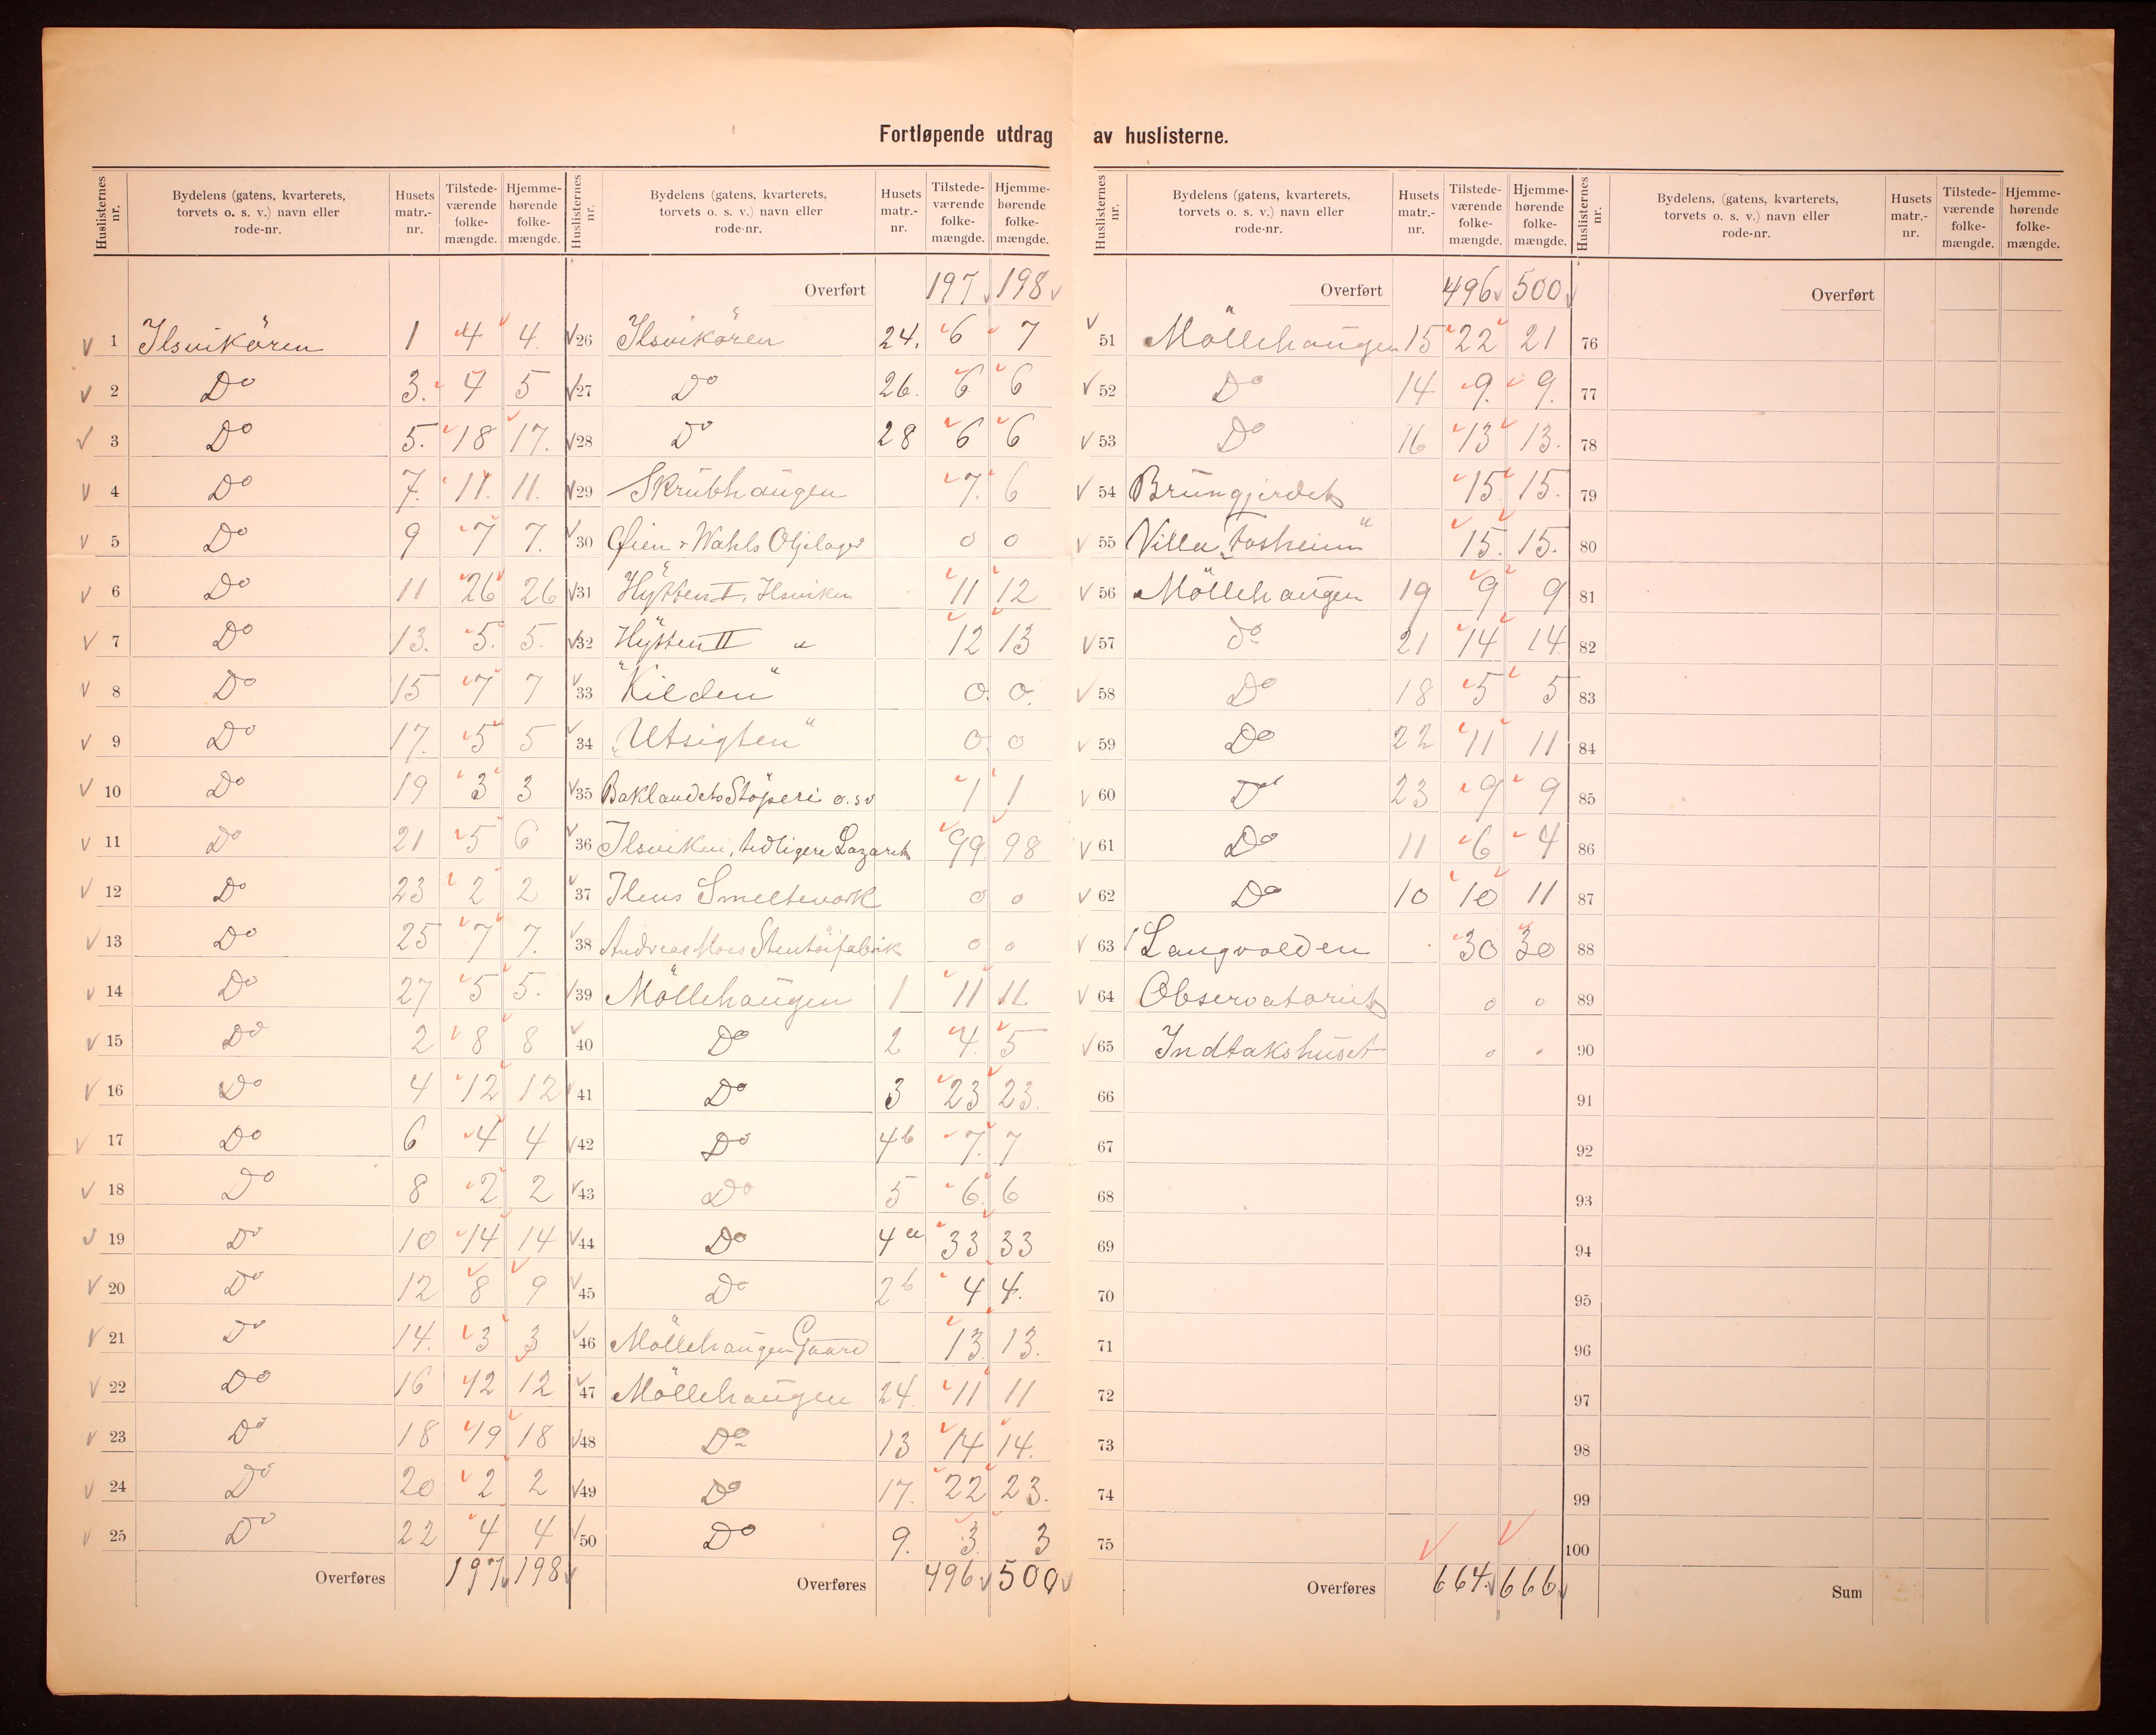 Fortløpende utdrag av huslisterne.
Huslisternes nr. | Bydelens (gatens, kvarterets, torvets o. s. v.) navn eller rode-nr. | Husets matr.-nr. | Tilstedeværende folkemængde. | Hjemmehørende folkemængde.
1 Ilsvikören 1 4 4
2 Do 3. 7 5
3 Do 5. 18 17.
4 Do 7. 11. 11.
5 Do 9 7 7.
6 Do 11 26 26
7 Do 13. 5. 5.
8 Do 15 7 7
9 Do 17. 5 5
10 Do 19 3 3
11 Do 21 5 6
12 Do 23 2 2
13 Do 25 7 7.
14 Do 27 5 5.
15 Do 2 8 8
16 Do 4 12 12
17 Do 6 4 4
18 Do 8 2 2
19 Do 10 14 14
20 Do 12 8 9
21 Do 14. 3 3
22 Do 16 12 12
23 Do 18 19 18
24 Do 20 2 2
25 Do 22 4 4
Overføres 197 198
Huslisternes nr. | Bydelens (gatens, kvarterets, torvets o. s. v.) navn eller rode-nr. | Husets matr.-nr. | Tilstedeværende folkemængde. | Hjemmehørende folkemængde.
Overført 197 198
26 Ilsvikören 24. 6 7
27 Do 26. 6 6
28 Do 28 6 6
29 Skrubhaugen 7. 6
30 Øien & Wahls Oljelager 0 0
31 Hytten I, Ilsviken 11 12
32 Hytten II " 12 13
33 "Kilden" 0. 0.
34 "Utsigten" 0. 0
35 Baklandets Stöperi o.s.v 1 1
36 Ilsviken, tidligere Lazaret 99 98
37 Ilens Smelteverk 0 0
38 Andreas Moes Stentöifabrik 0 0
39 Möllehaugen 1 11 11
40 Do 2 4. 5
41 Do 3 23 23.
42 Do 4b 7. 7
43 Do 5 6. 6
44 Do 4a 33 33
45 Do 2b 4 4.
46 Möllehaugen Gaard 13. 13.
47 Möllehaugen 24. 11 11
48 Do 13 14 14.
49 Do 17. 22 23.
50 Do 9. 3. 3
Overføres 496 500
Huslisternes nr. | Bydelens (gatens, kvarterets, torvets o. s. v.) navn eller rode-nr. | Husets matr.-nr. | Tilstedeværende folkemængde. | Hjemmehørende folkemængde.
Overført 496 500
51 Möllehaugen 15 22 21
52 Do 14 9. 9.
53 Do 16 13 13.
54 Brungjerdet 15. 15.
55 Villa "Aasheim" 15. 15.
56 Möllehaugen 19 9 9
57 do 21 14 14
58 Do 18 5 5
59 Do 22 11 11
60 Do 23 9 9
61 Do 11 6 4
62 Do 10 10 11
63 Langvolden 30 30
64 Observatoriet 0 0
65 Indtakshuset 0 0
66
67
68
69
70
71
72
73
74
75
Overføres 664. 666
Huslisternes nr. | Bydelens, (gatens, kvarterets, torvets o. s. v.) navn eller rode-nr. | Husets matr.-nr. | Tilstedeværende folkemængde. | Hjemmehørende folkemængde.
Overført
76
77
78
79
80
81
82
83
84
85
86
87
88
89
90
91
92
93
94
95
96
97
98
99
100
Sum